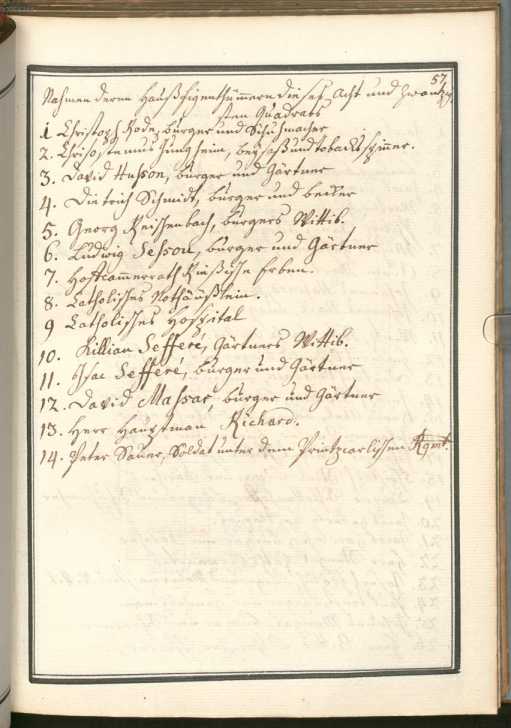 57
Nahmen deren Haußeigenthümmern dießes Acht und Zwantzig
sten Quadrats
1 Christoph Rode, burger und Schuhmacher
2. Chrisostemus Jungheim, beysaß und tobackspinner.
3. David Husson, burger und Gärtner
4. Dietrich Schmidt, burger und becker
5. Georg Reichenbach, burgers Wittib.
6. Ludwig Sesson, burger und Gärtner
7. Hoffcammerrath Erben.
8. Catholisches Nothäußlein.
9 Catholisches Hospital
10. Killian Sefferé, Gärtners Wittib.
11. Isac Sefferé, burger und Gärtner
12. David Massar, burger und Gärtner
13. Herr Hauptman Richard.
14. Peter Sauer, Soldat unter dem Printzcarlischen Rgmt.